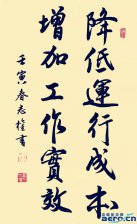 降低運行成本
增加工作實效
壬寅春志權書
aero.cn